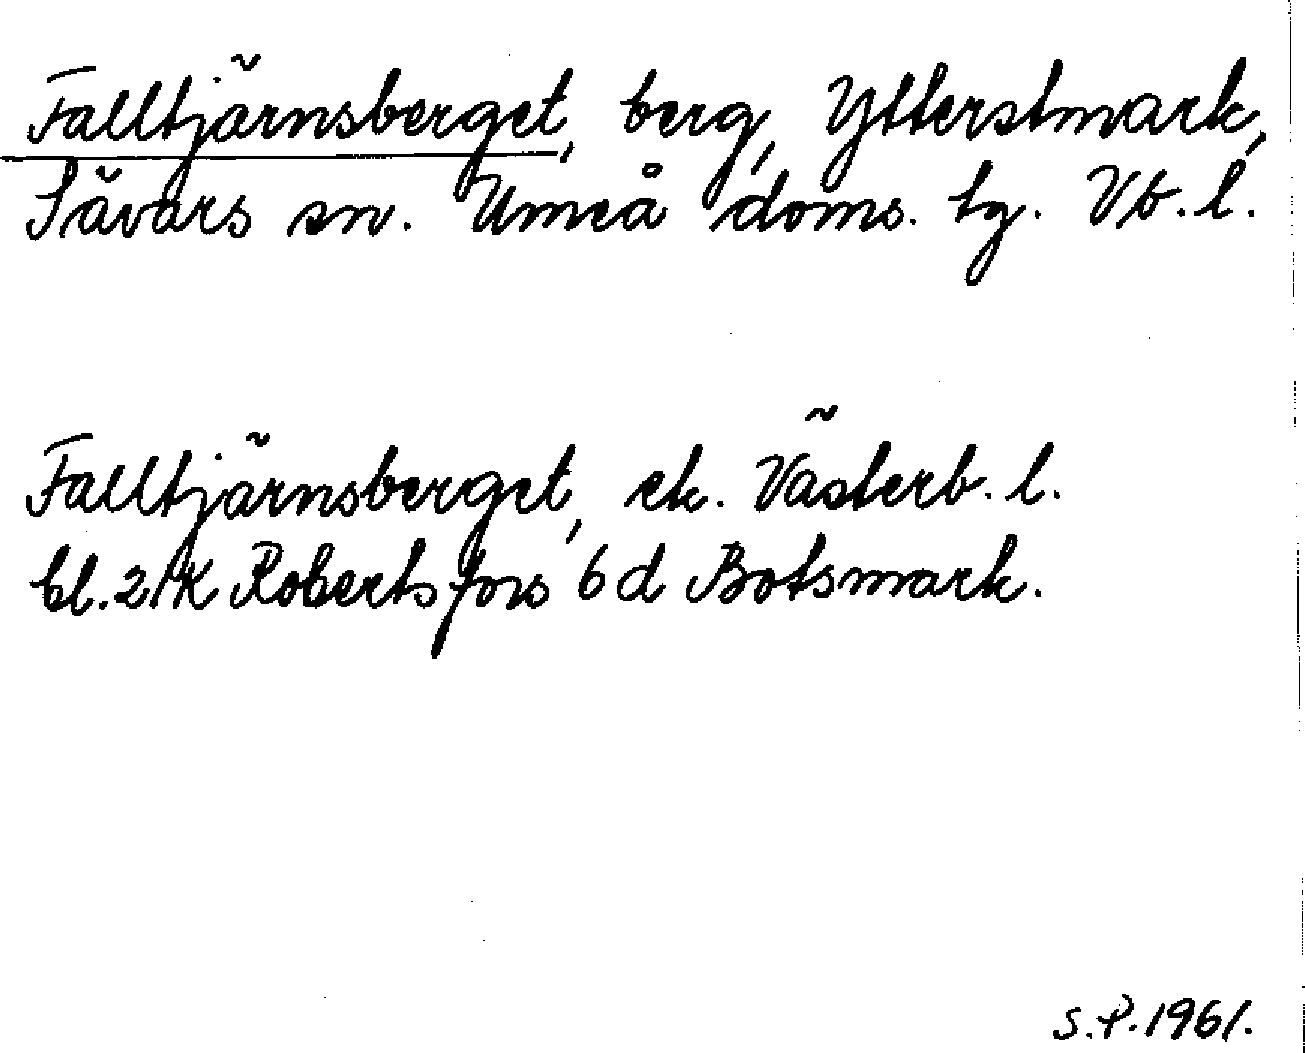 Falltjärnsberget, berg, Ytterstmark,
Sävars sn. Umeå doms. tg. Vb. l.
Falltjärnsberget, ek. Västerb. l.
bl. 21K Robertsfors 6 d Botsmark.
S.P. 1961.